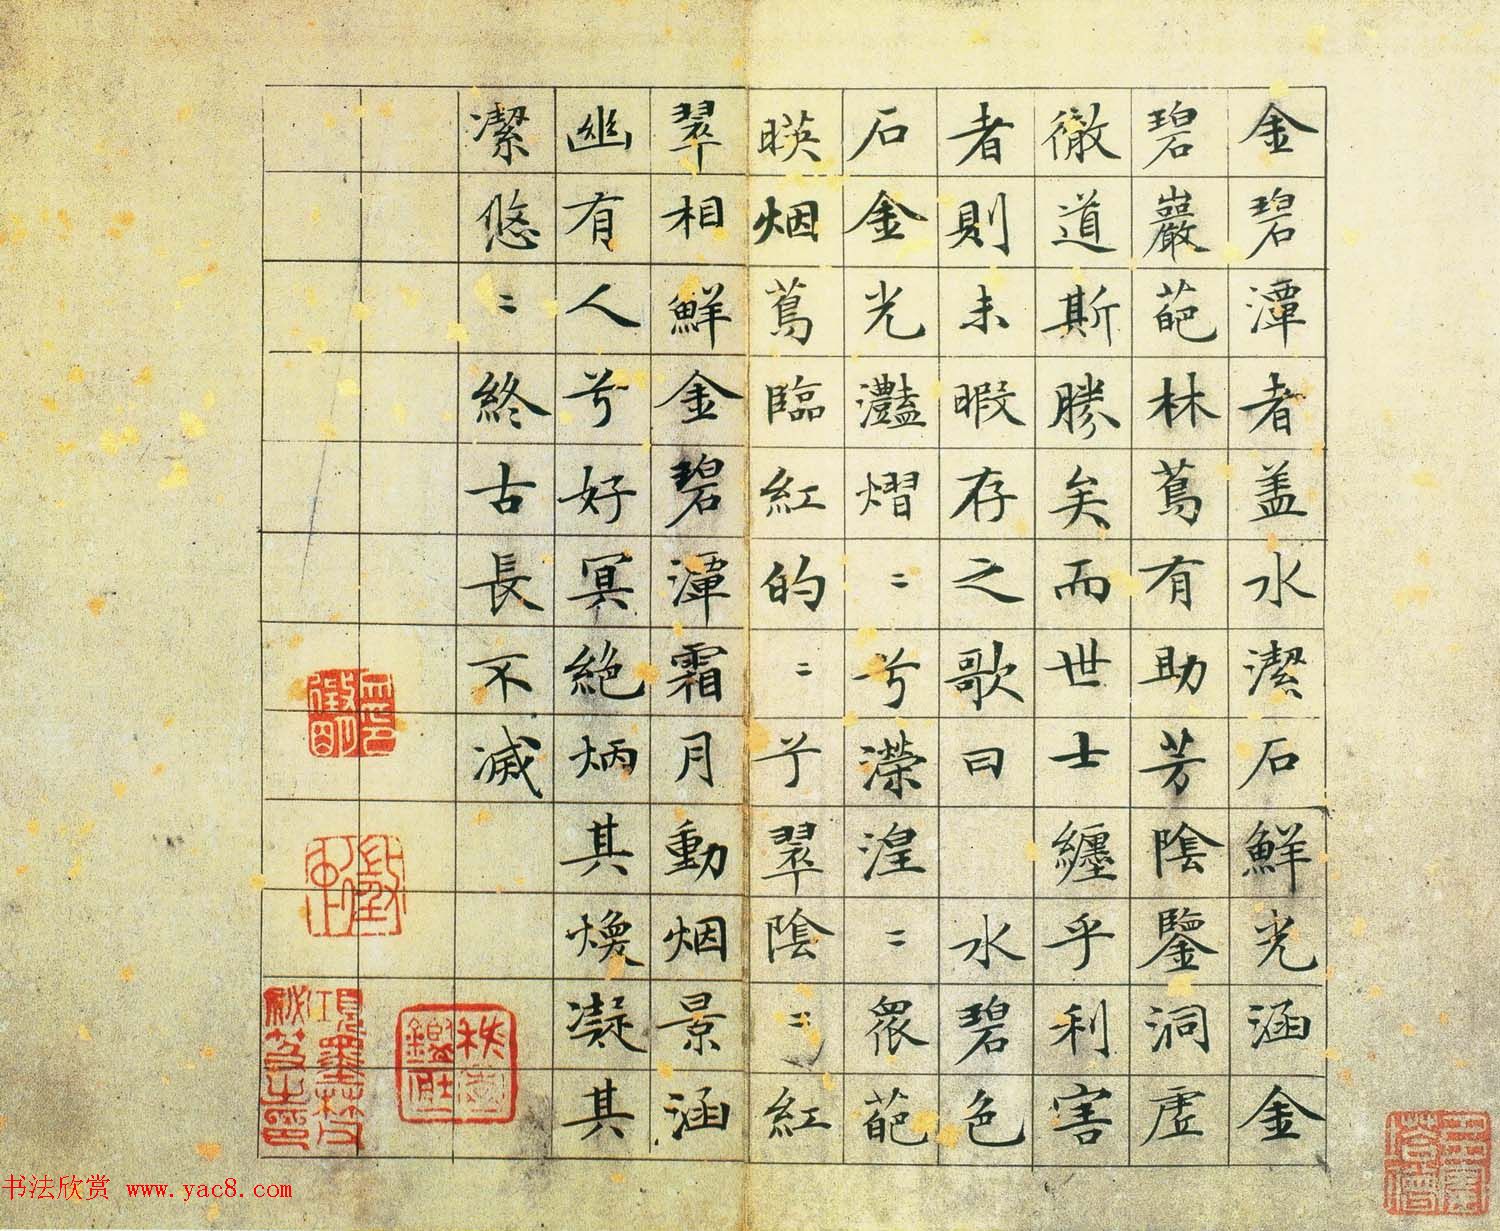 金碧潭者盖水潔石鮮光涵金
碧巖葩林蔦有助芳陰鑒洞虛
徹道斯勝矣而世士纏乎利害
者則未暇存之歌曰 水碧色
石金光灩熠〻兮濚湟〻眾葩
暎烟蔦臨紅的〻兮翠陰〻紅
翠相鮮金碧潭霜月動烟景涵
幽有人兮好冥絕炳其煥凝其
潔悠〻終古長不滅
項墨林父秘笈之印
书法欣赏 www.yac8.com